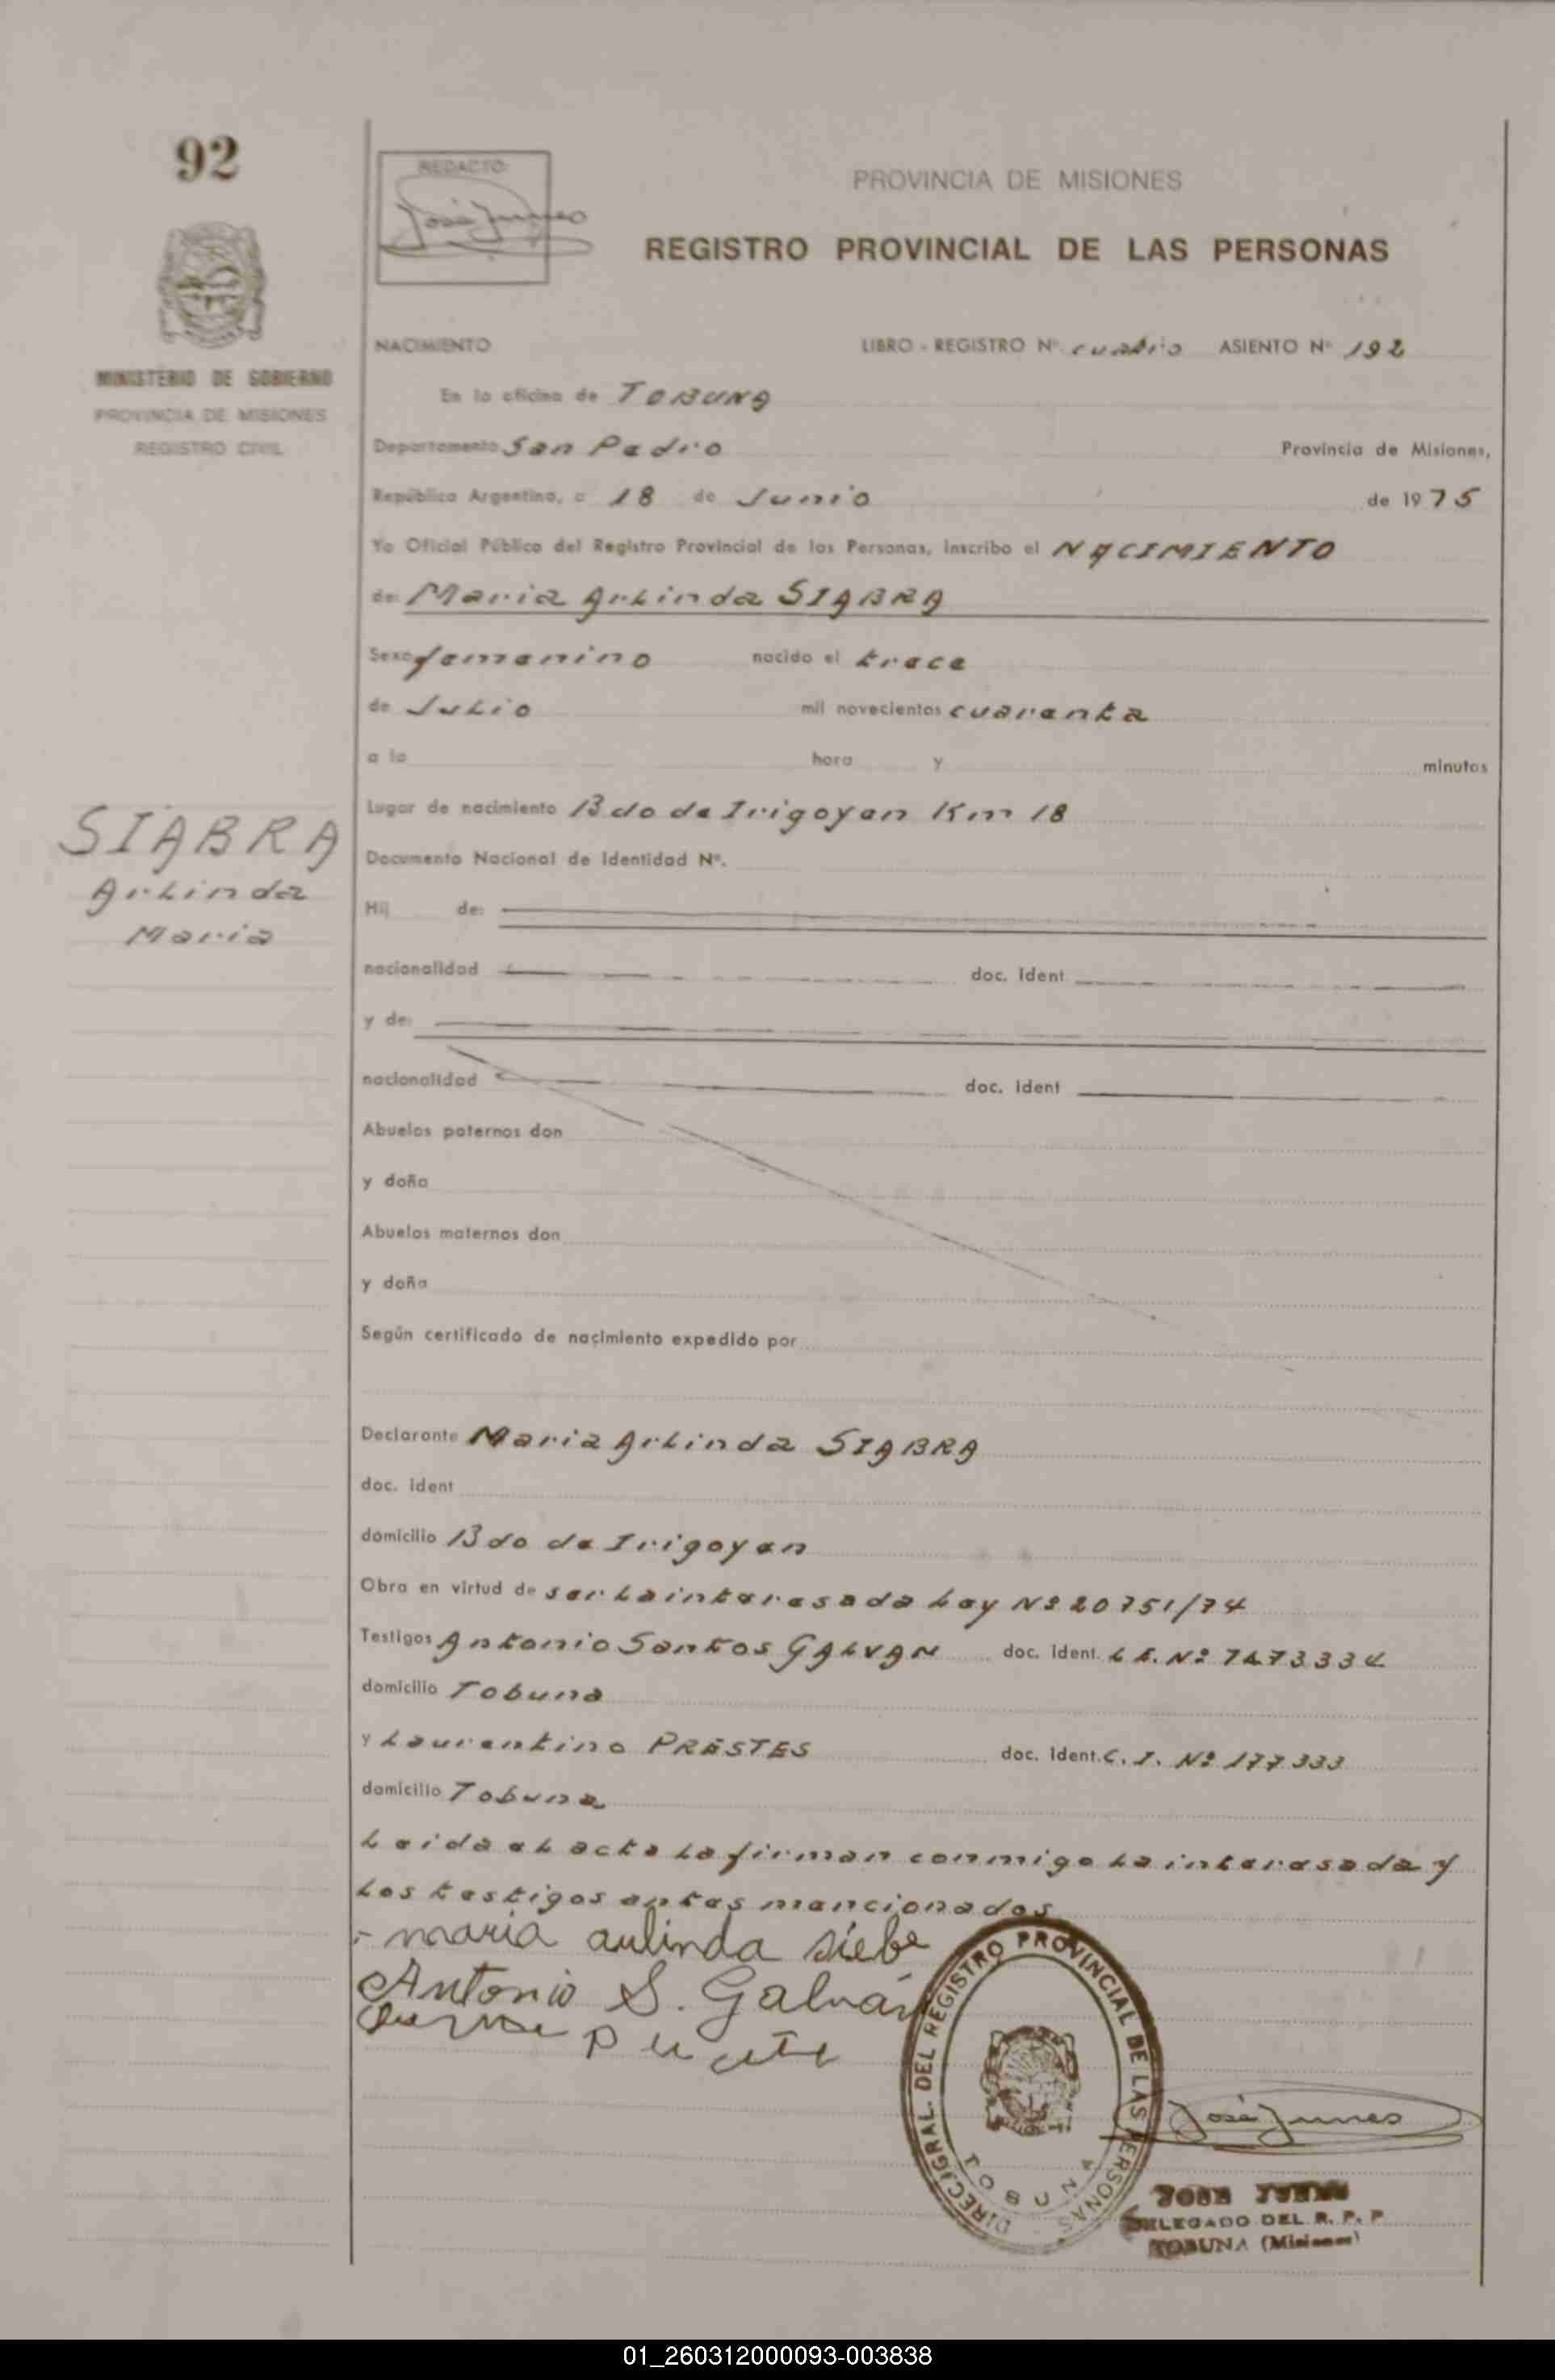 92
REDACTO:
José Junes
PROVINCIA DE MISIONES
REGISTRO PROVINCIAL DE LAS PERSONAS
MINISTERIO DE GOBIERNO
PROVINCIA DE MISIONES
REGISTRO CIVIL
NACIMIENTO LIBRO - REGISTRO Nº cuatro ASIENTO Nº 192
En la oficina de TOBUNA
Departamento San Pedro Provincia de Misiones,
República Argentina, a 18 de Junio de 1975
Yo Oficial Público del Registro Provincial de las Personas, inscribo el NACIMIENTO
de: Maria Arlinda SIABRA
Sexo femenino nacido el trece
de Julio mil novecientos cuarenta
a la hora y minutos
Lugar de nacimiento Bdo de Irigoyen Km 18
SIABRA
Arlinda
Maria
Documento Nacional de Identidad Nº.
Hij de:
nacionalidad doc. ident
y de:
nacionalidad doc. ident
Abuelos paternos don
y doña
Abuelos maternos don
y doña
Según certificado de nacimiento expedido por
Declarante Maria Arlinda SIABRA
doc. ident
domicilio Bdo de Irigoyen
Obra en virtud de ser la interesada Ley Nº 20751/74
Testigos Antonio Santos GALVAN doc. ident. L E. Nº 7473334
domicilio Tobuna
y Laurentino PRESTES doc. ident. C. I. Nº 177333
domicilio Tobuna
Leida el acta la firman conmigo la interesada y
los testigos antes mencionados
- maria aulinda siebe
Antonio S. Galván
DIREC. GRAL. DEL REGISTRO PROVINCIAL DE LAS PERSONAS
TOBUNA
José Junes
JOSE JUNES
DELEGADO DEL R. P. P
TOBUNA (Misiones)
01_260312000093-003838